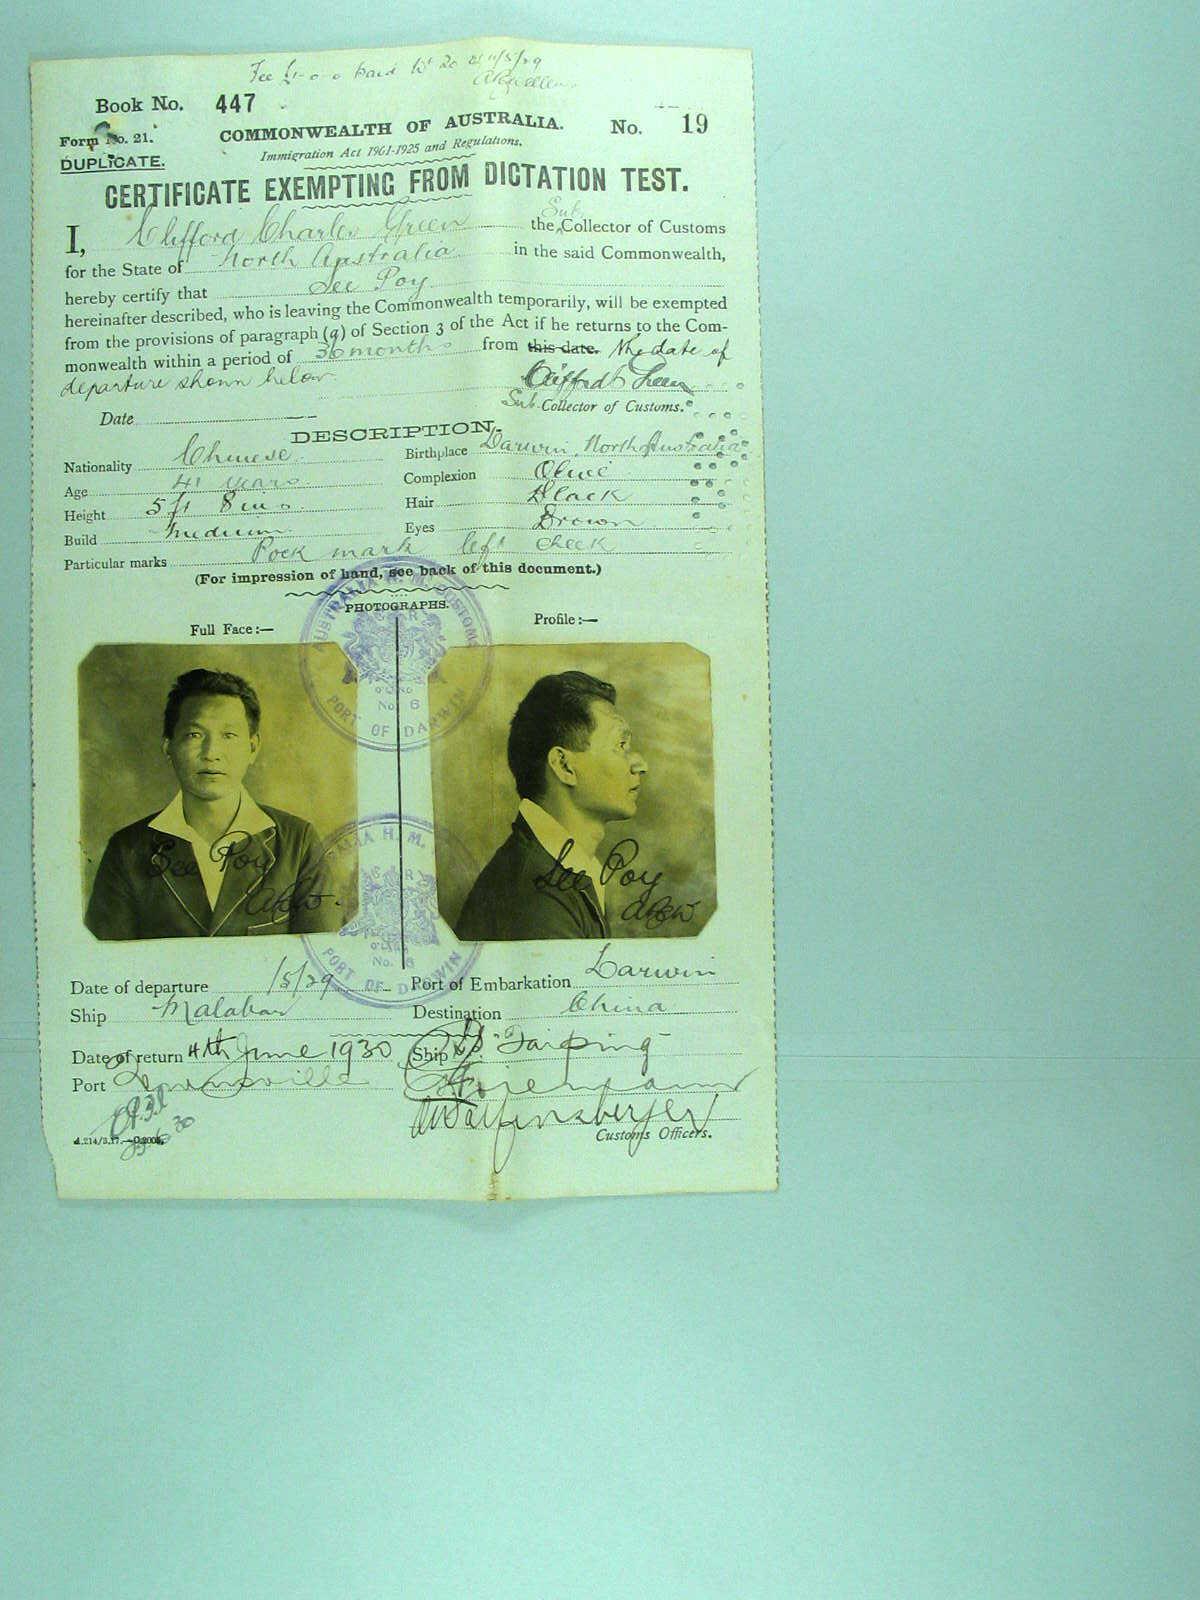 Fee £1-0-0 paid 11/5/29
Book No. 447
Form No. 21.
COMMONWEALTH OF AUSTRALIA.
No. 19
DUPLICATE.
Immigration Act 1901-1925 and Regulations.
CERTIFICATE EXEMPTING FROM DICTATION TEST.
I, Clifford Charles Green the Sub Collector of Customs
for the State of North Australia in the said Commonwealth,
hereby certify that See Poy
hereinafter described, who is leaving the Commonwealth temporarily, will be exempted
from the provisions of paragraph (a) of Section 3 of the Act if he returns to the Com-
monwealth within a period of 36 months from this date. the date of
departure shown below.
Sub Collector of Customs.
Date
DESCRIPTION.
Nationality Chinese Birthplace Darwin, North Australia
Age 41 years Complexion Olive
Height 5 ft 8 ins. Hair Black
Build Medium Eyes Brown
Particular marks Pock mark left cheek
(For impression of hand, see back of this document.)
PHOTOGRAPHS.
Full Face:— Profile:—
AUSTRALIA H. M. CUSTOMS
G R
No. 6
PORT OF DARWIN
See Poy
See Poy
G R
No. 6
PORT OF DARWIN
Date of departure 1/5/29 Port of Embarkation Darwin
Ship Malabar Destination China
Date of return 4th June 1930 Ship "Taiping"
Port Townsville
Customs Officers.